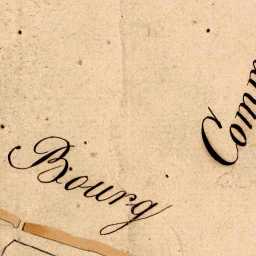 Bourg
Comm